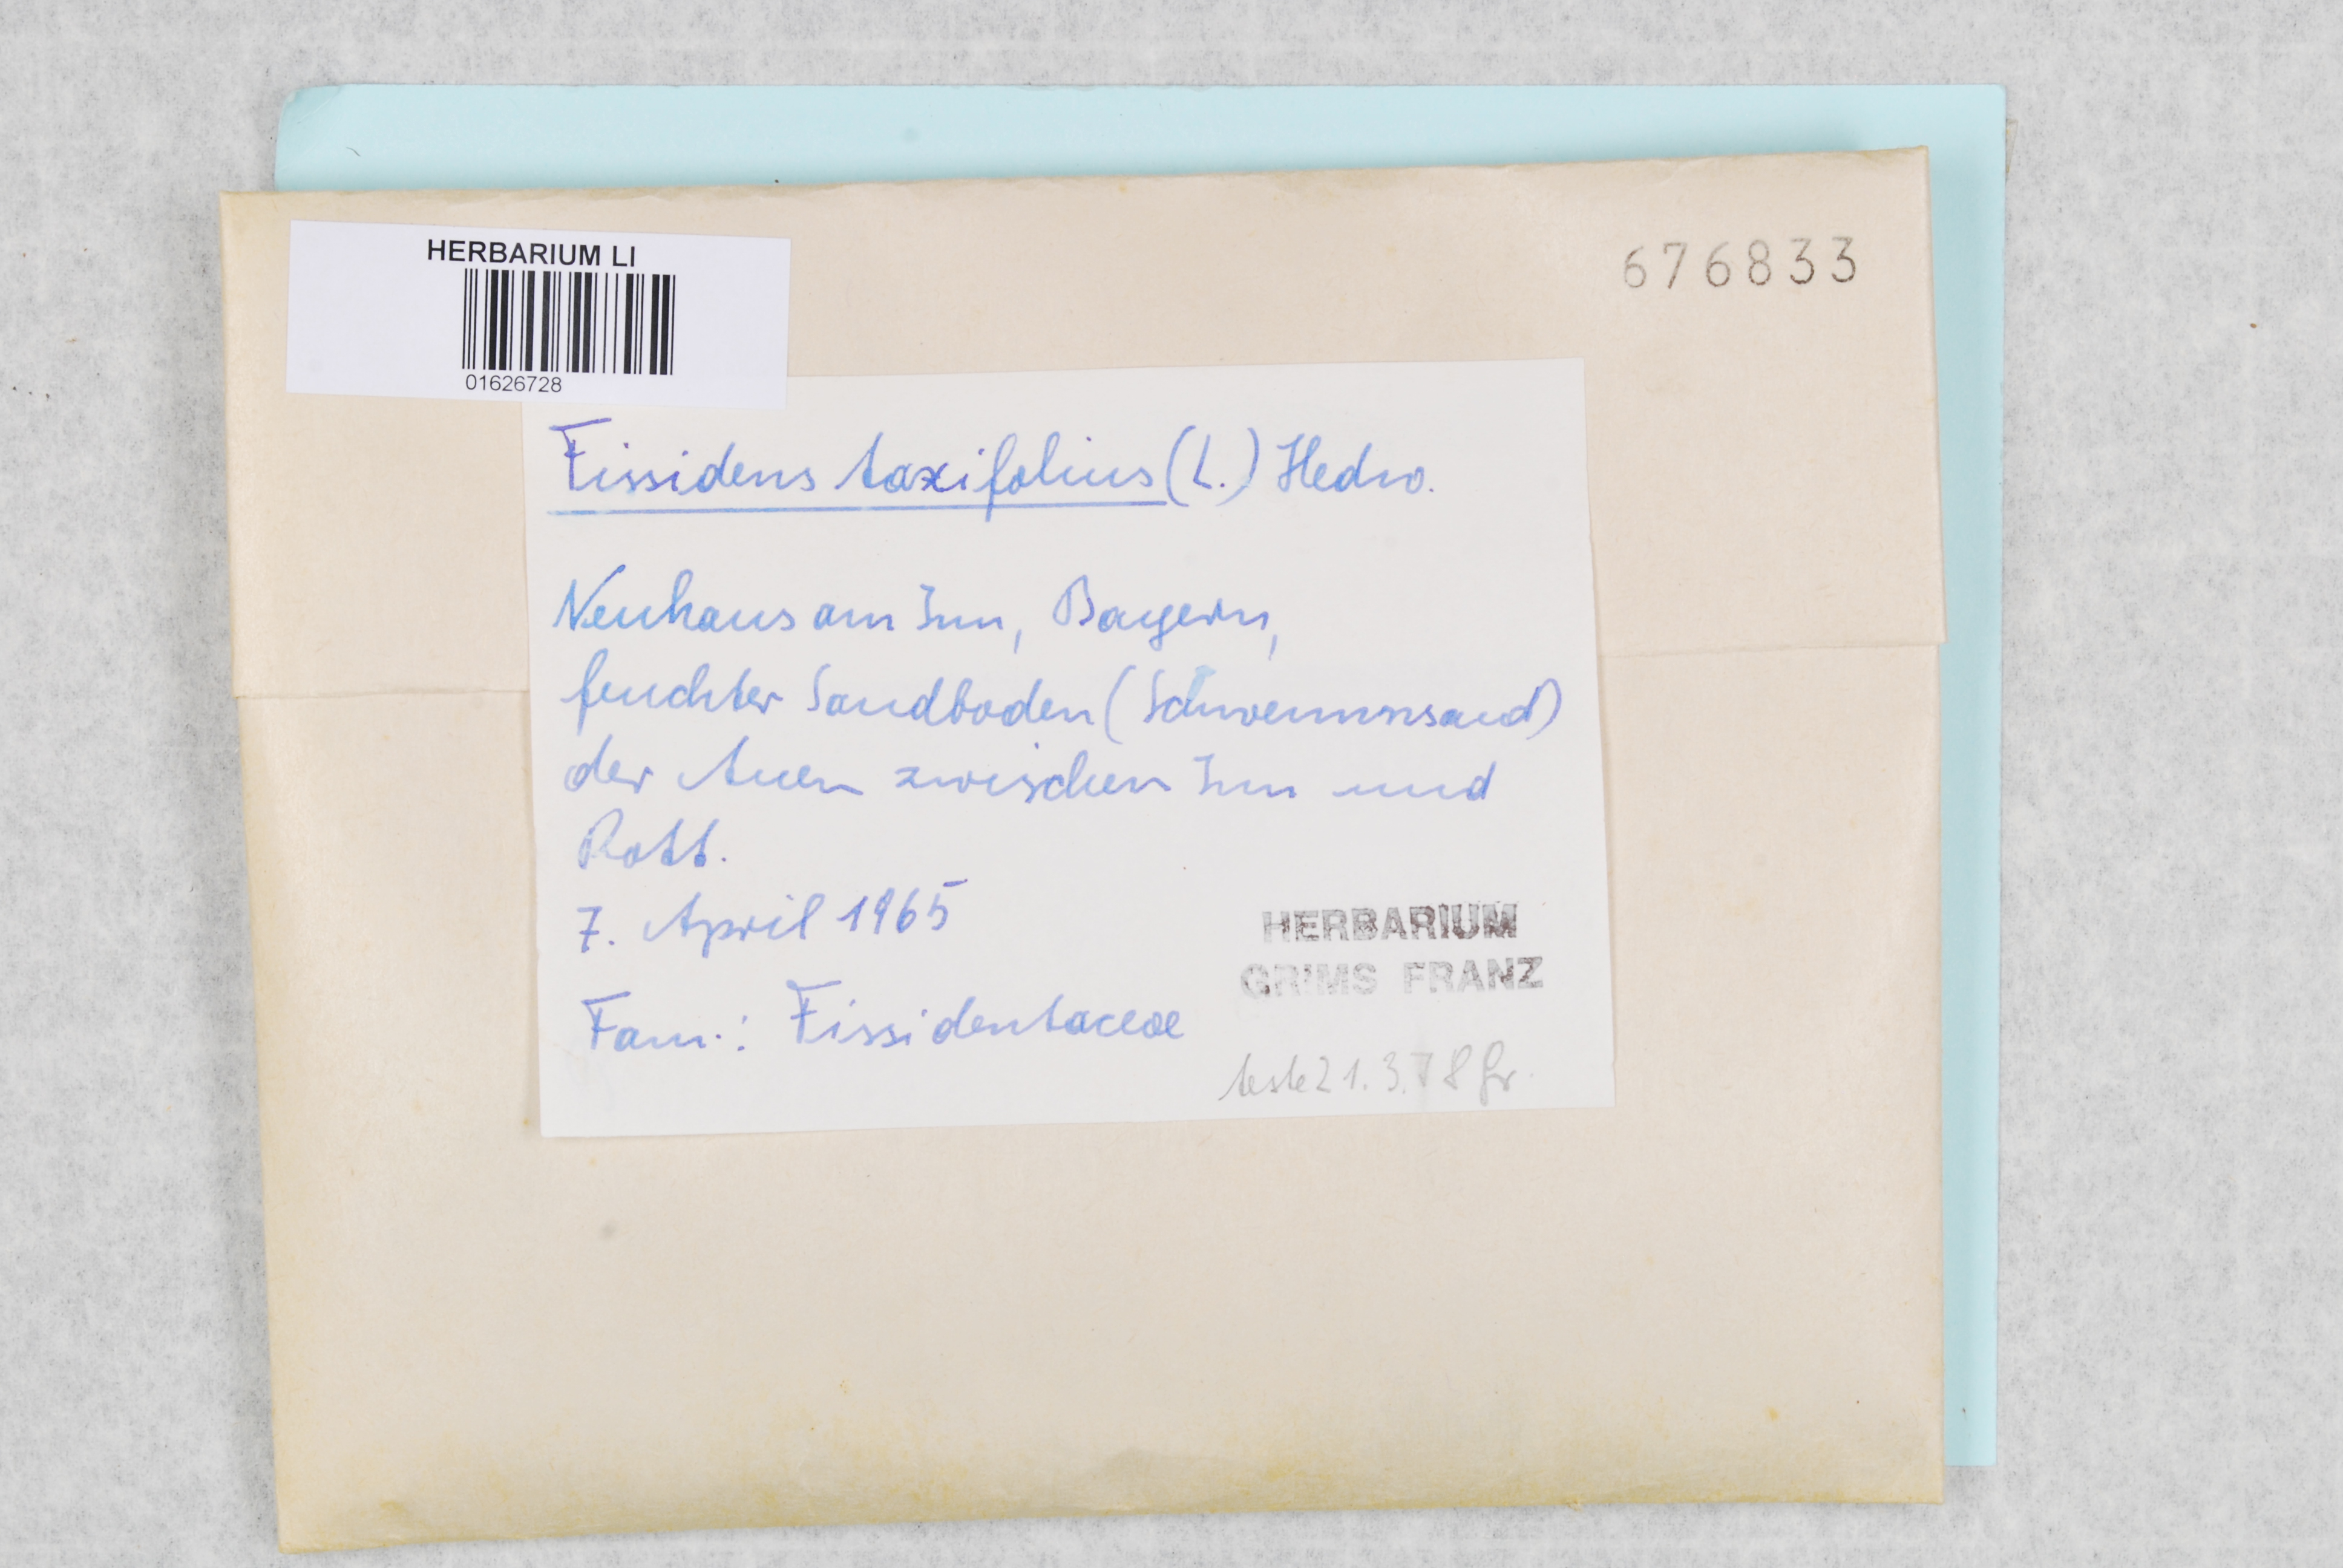 HERBARIUM LI
01626728
676833
Fissidens taxifolius (L.) Hedw.
Neuhaus am Inn, Bayern,
feuchter Sandboden (Schwemmsand)
der Auen zwischen Inn und
Rott.
7. April 1965
HERBARIUM
GRIMS FRANZ
Fam.: Fissidentaceae
teste 21.3.78 Gr.